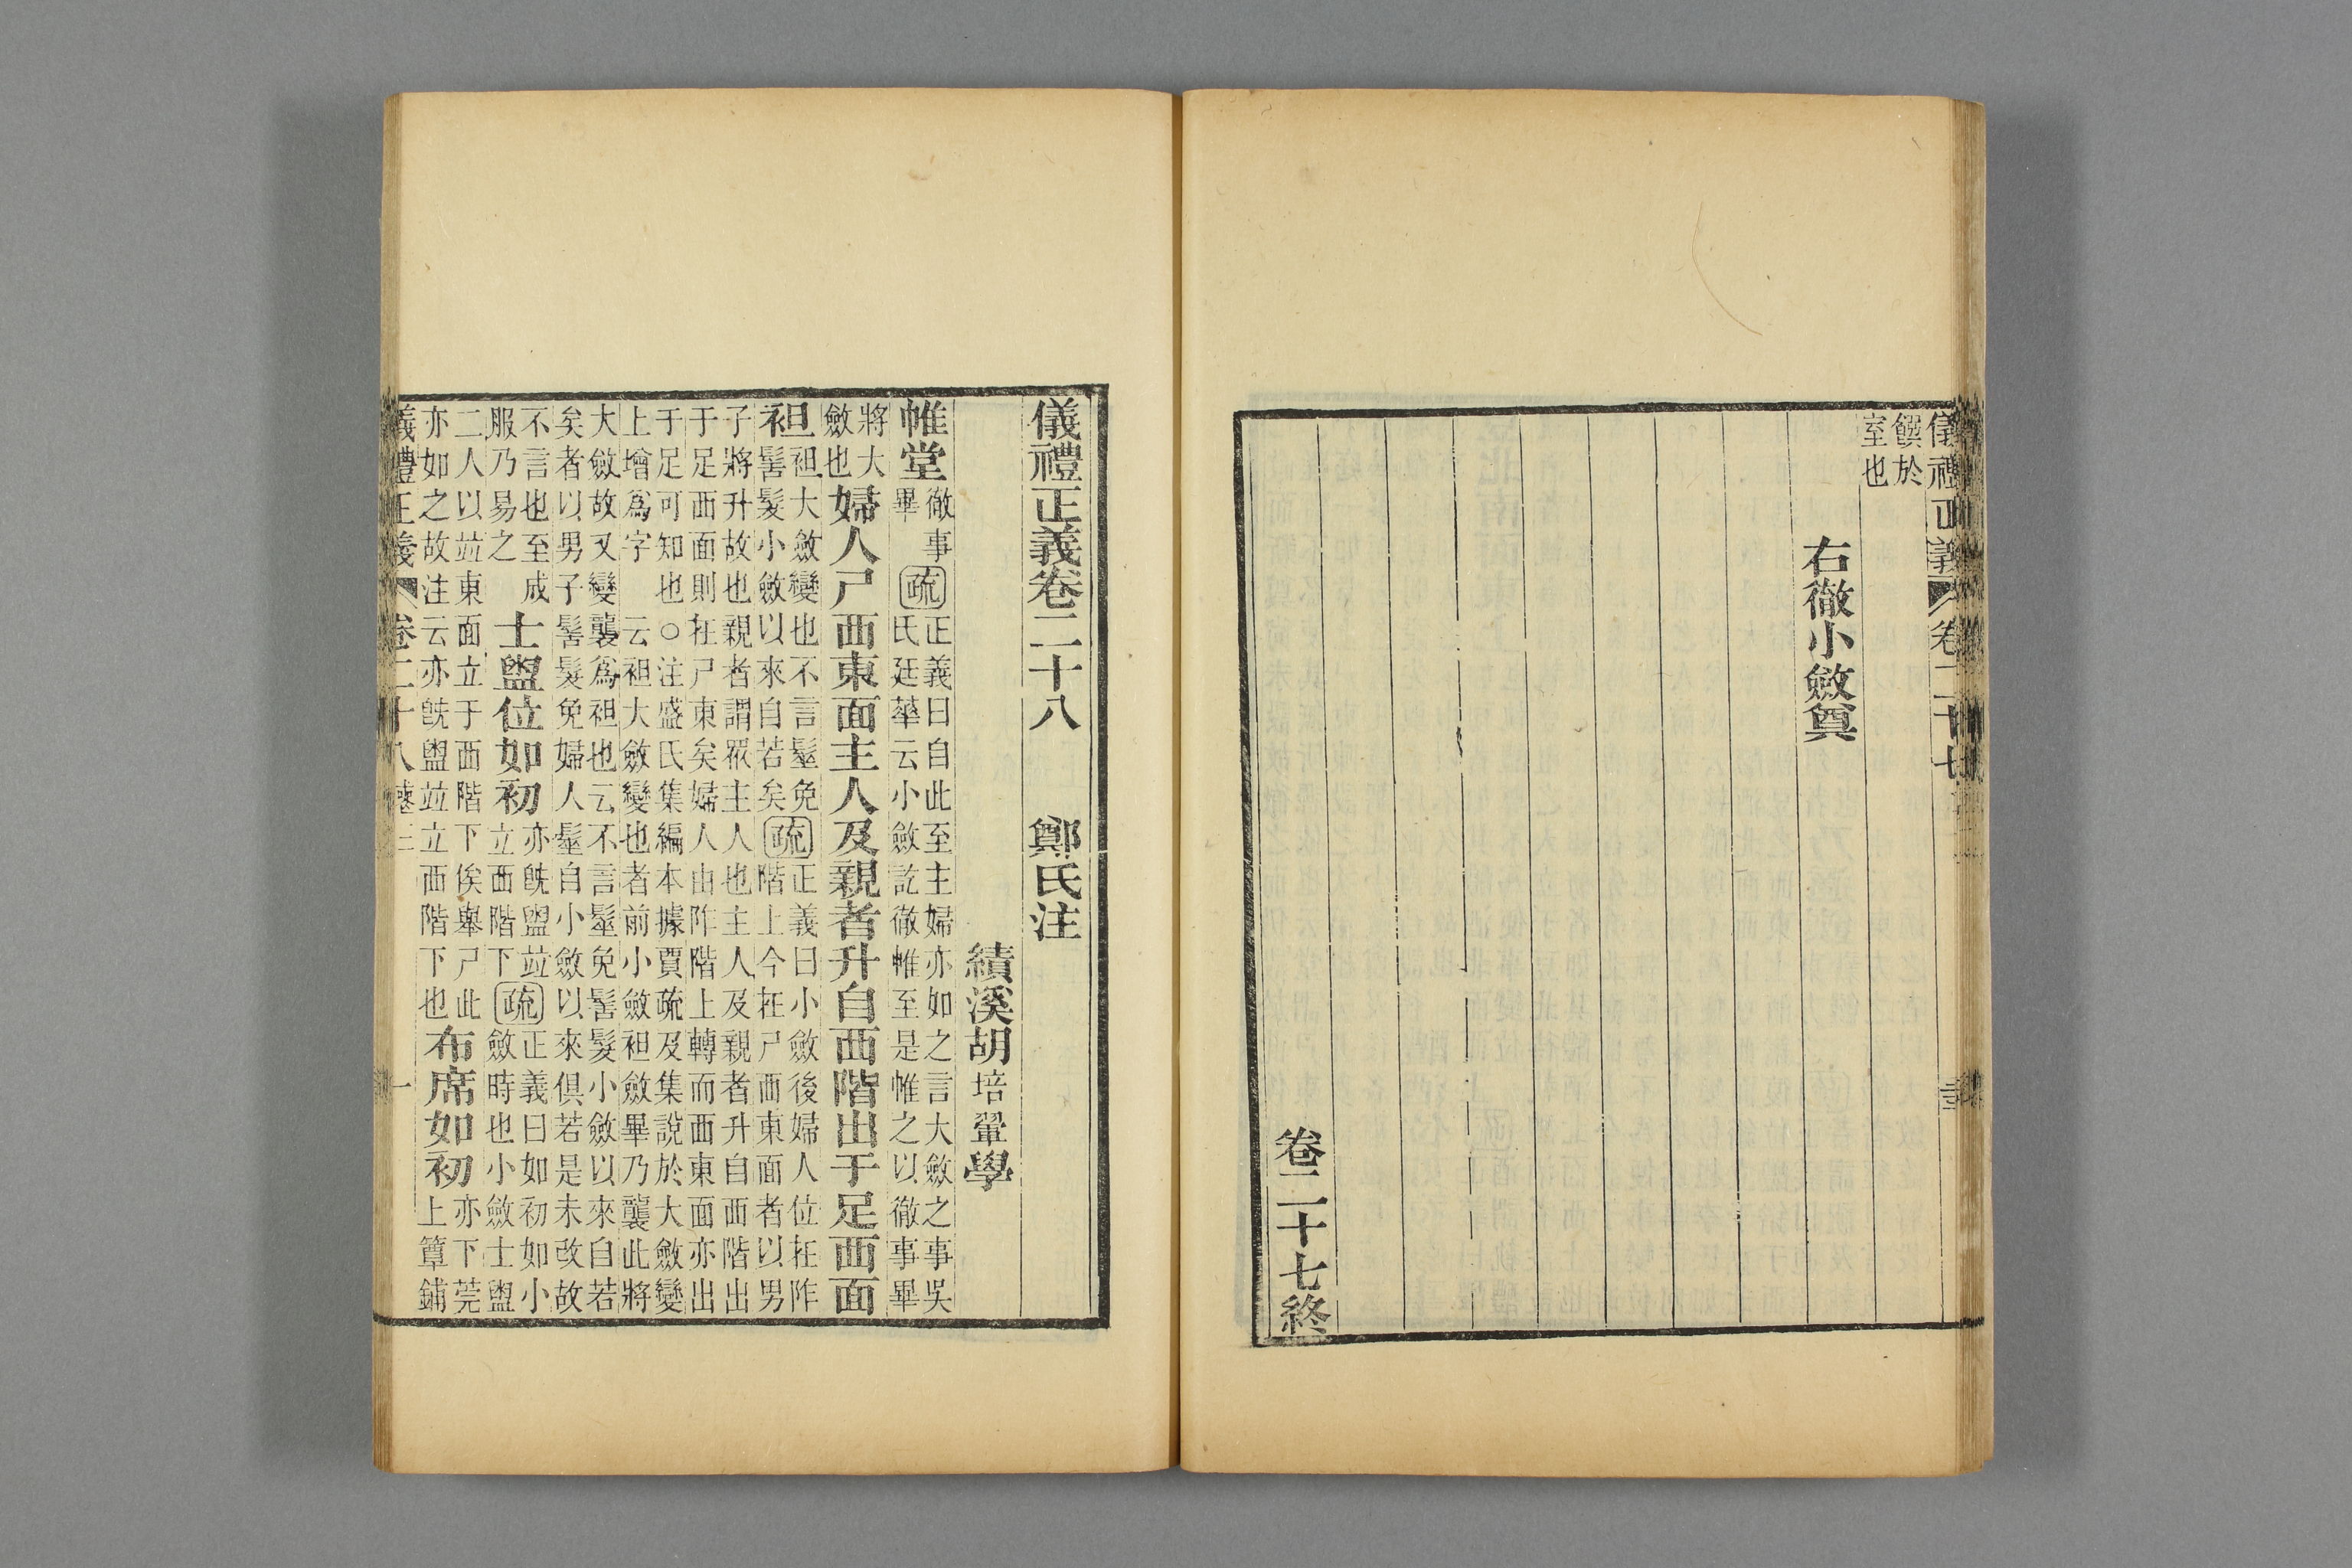 儀禮正義 卷二十七
饌於
室也
右徹小斂奠
卷二十七終
儀禮正義卷二十八 鄭氏注
績溪胡培翬學
帷堂 徹事畢 疏 正義曰自此至主婦亦如之言大斂之事吳氏廷華云小斂訖徹帷至是帷之以徹事畢
將大斂也 婦人尸西東面主人及親者升自西階出于足西面
袒 袒大斂變也不言髽免髻髮小斂以來自若矣 疏 正義曰小斂後婦人位在阼階上今在尸西東面者以男
子將升故也親者謂眾主人也主人及親者升自西階出
于足西面則在尸東矣婦人由阼階上轉而西東面亦出
于足可知也○注盛氏集編本據賈疏及集說於大斂變
上增爲字 云袒大斂變也者前小斂袒斂畢乃襲此將
大斂故又變襲爲袒也云不言髽免髻髮小斂以來自若
矣者以男子髻髮免婦人髽自小斂以來俱若是未改故
不言也至成服乃易之 士盥位如初 亦既盥竝立西階下 疏 正義曰如初如小斂時也小斂士盥
二人以竝東面立于西階下俟舉尸此亦如之故注云亦既盥竝立西階下也 布席如初 亦下莞上簟鋪
儀禮正義 卷二十八 一